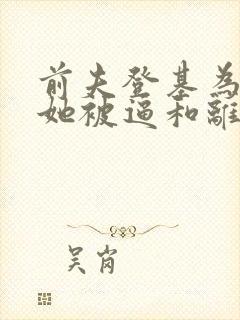 前夫登基為
她被逼和離
吴肖